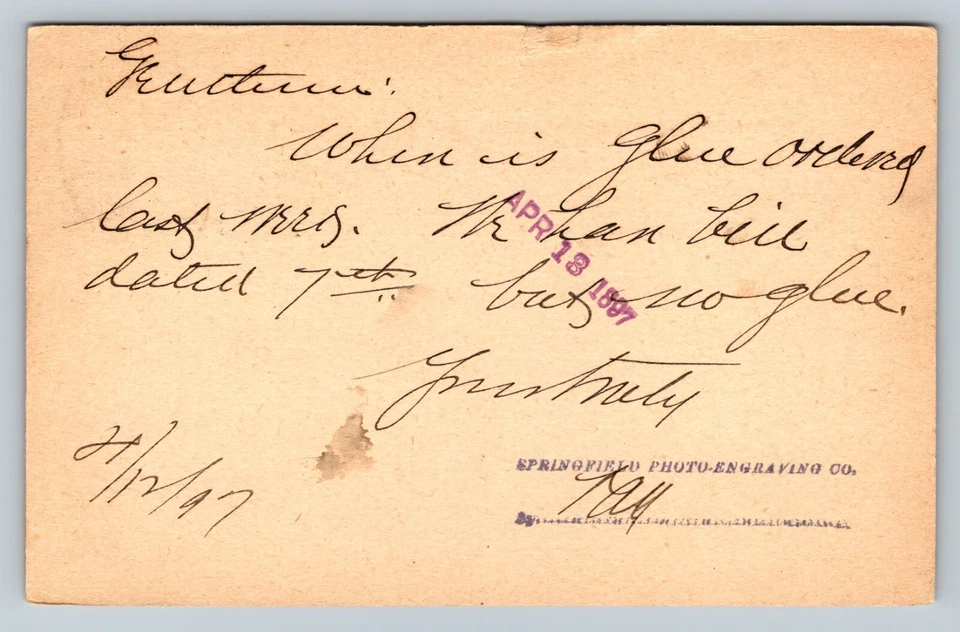 Gentlemen:
When is glue ordered
last Wed. We have bill
dated 7th but no glue.
Yours truly
APR 13 1897
4/12/97
SPRINGFIELD PHOTO-ENGRAVING CO.
By